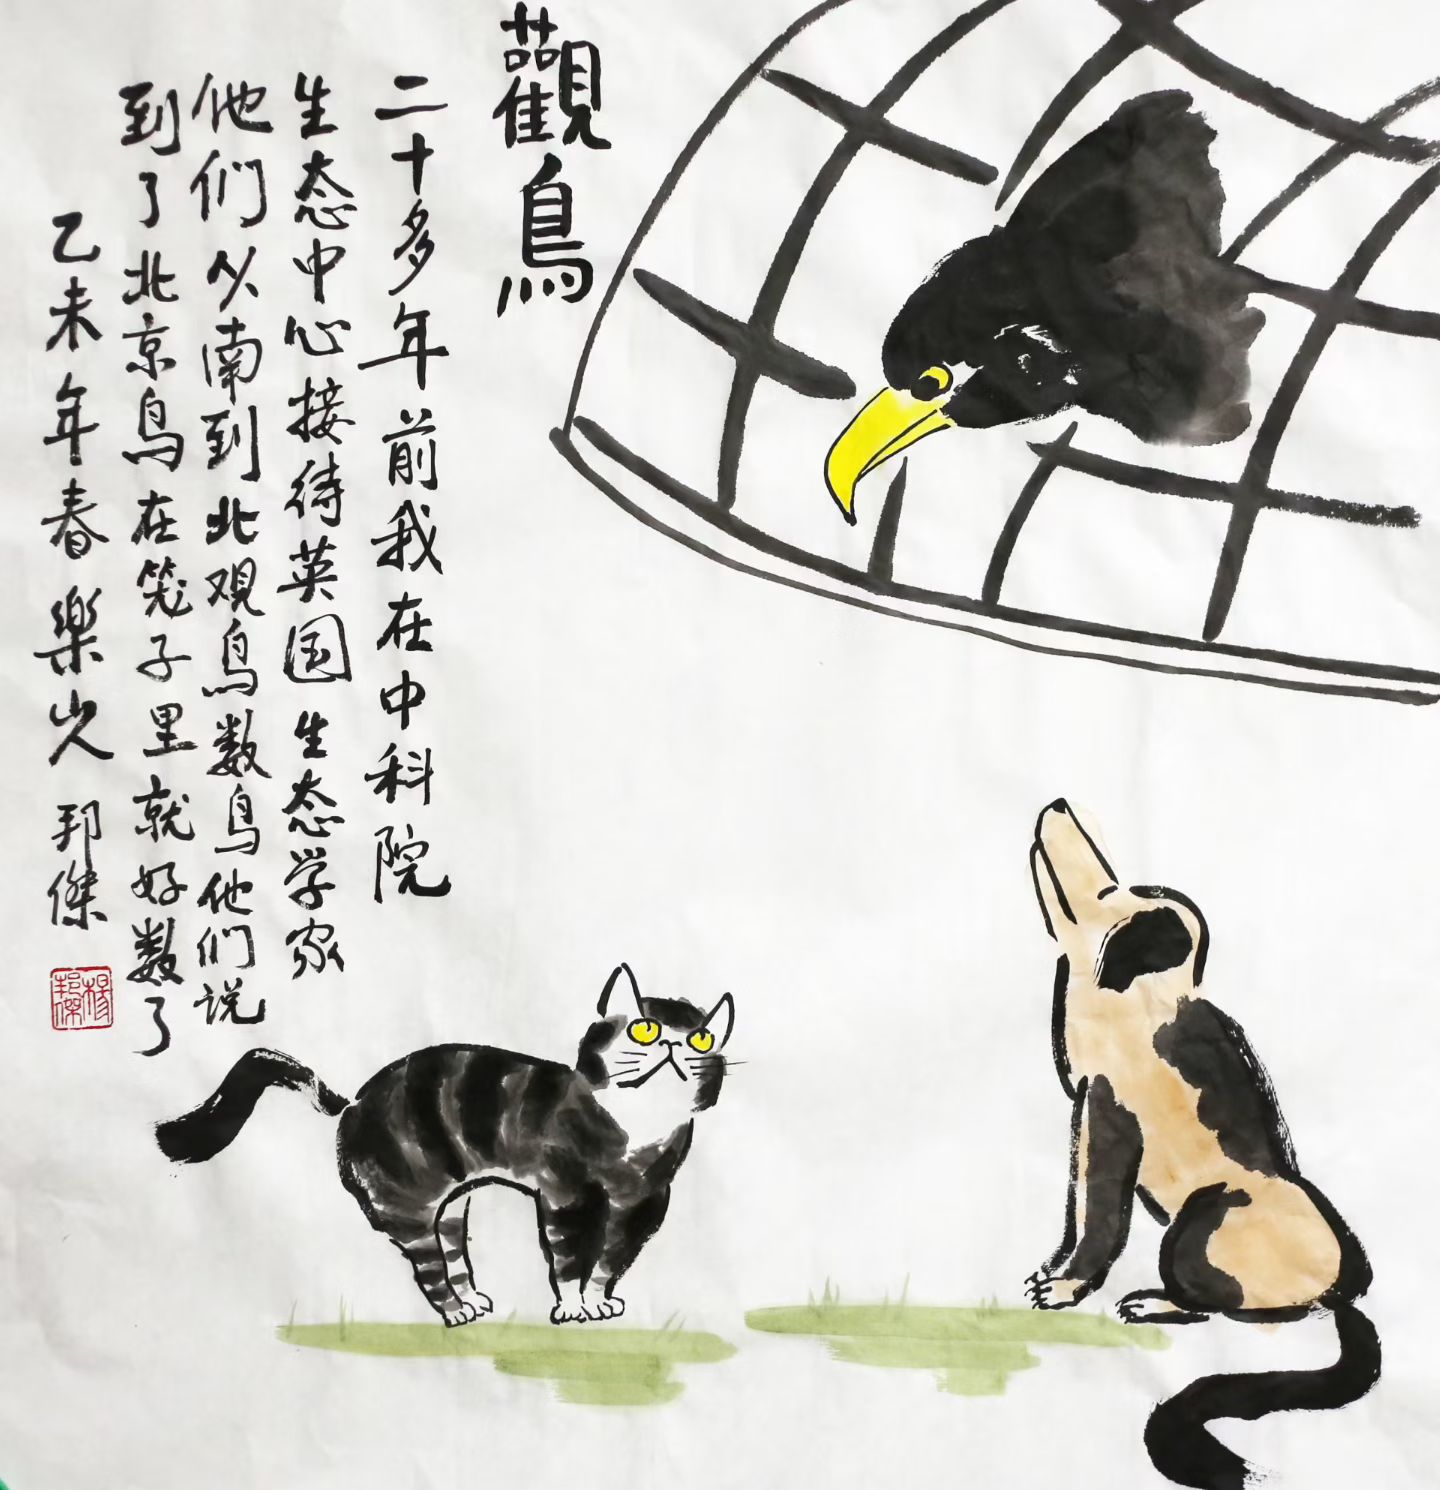 觀鳥
二十多年前我在中科院
生态中心接待英国生态学家
他们从南到北观鸟数鸟他们说
到了北京鸟在笼子里就好数了
乙未年春樂山人邦傑
楊邦傑